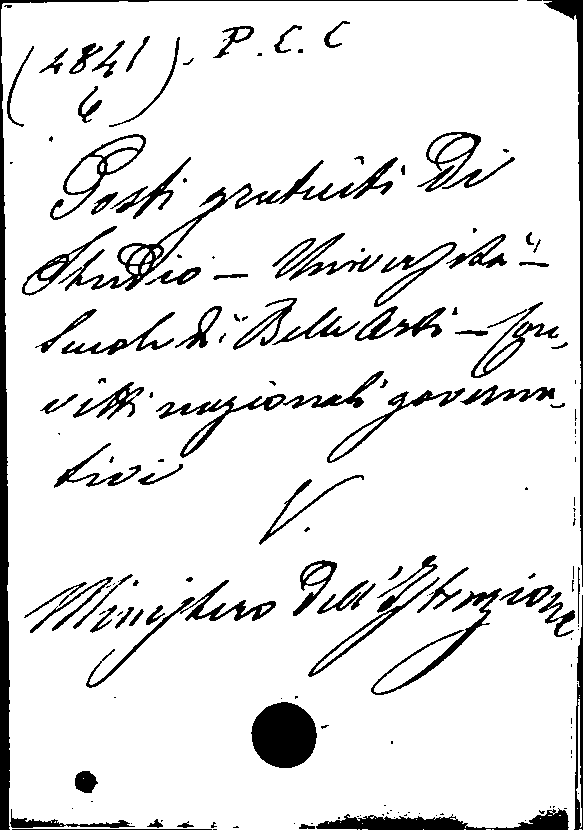 (4841). P.C.C
6
Posti gratuiti di
Studio – Università –
Scuole di Belle Arti – Con,
vitti nazionali governa,
tivi
V.
Ministero dell'Istruzione